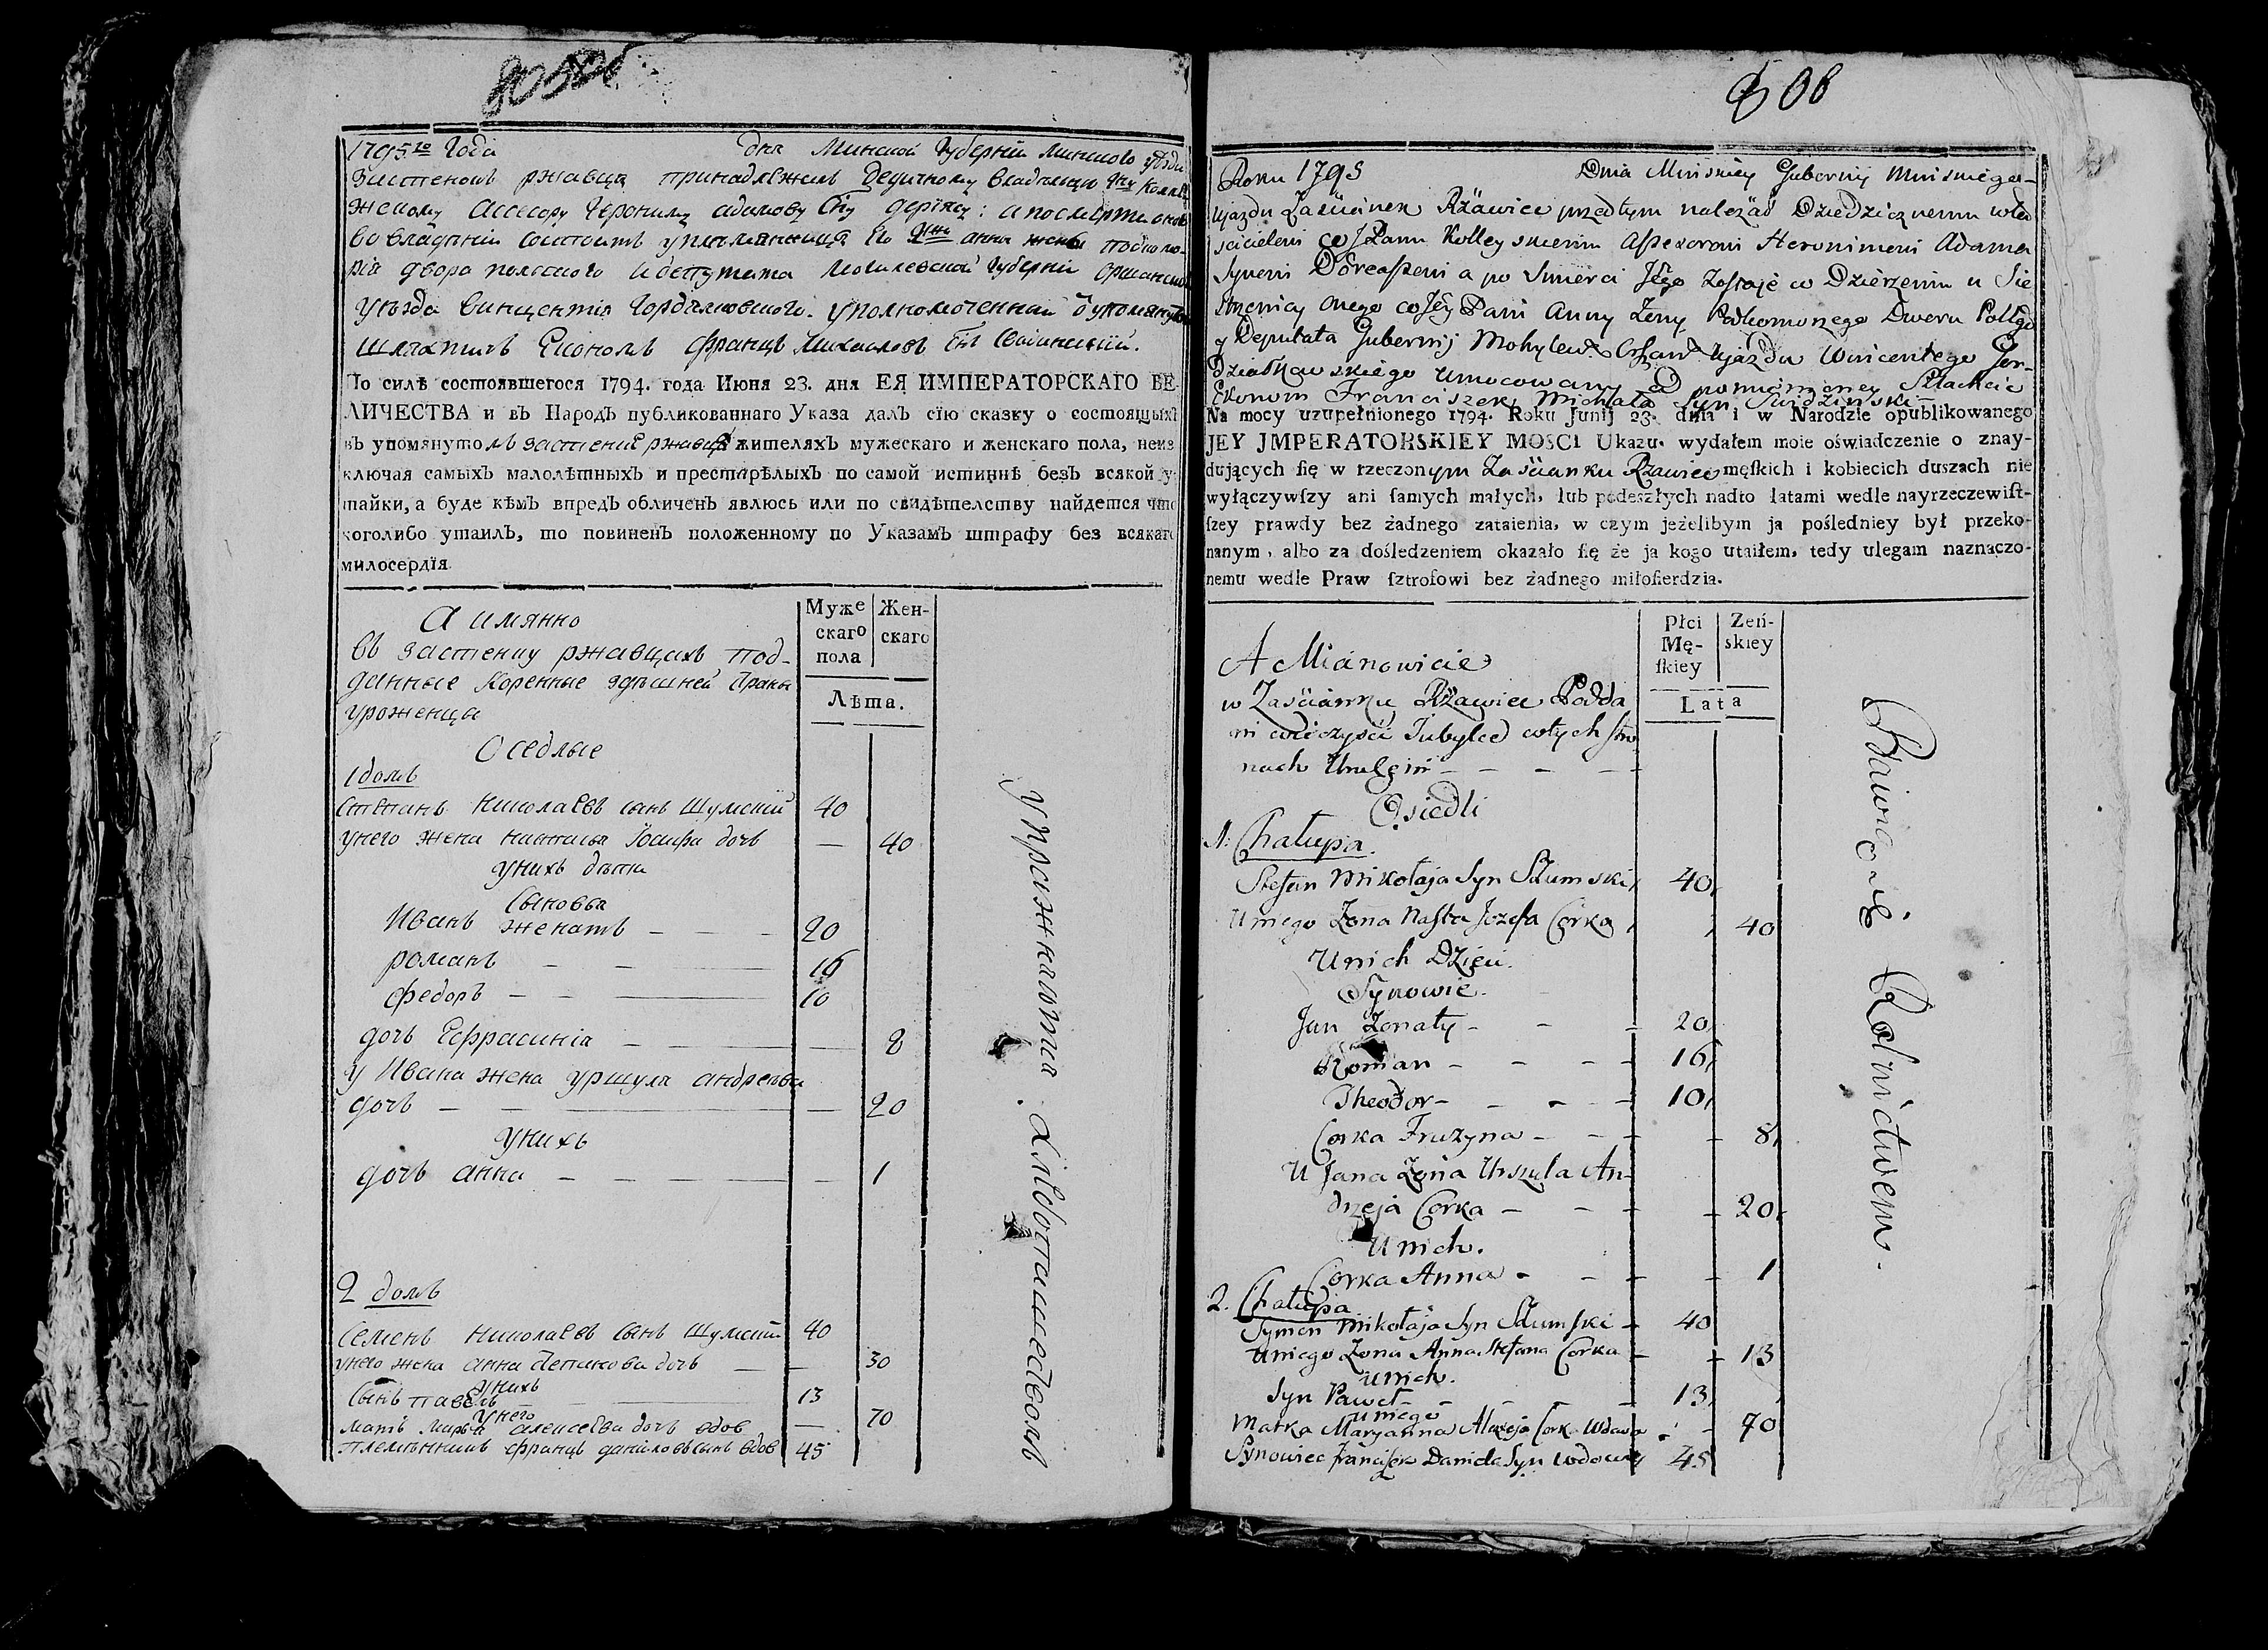 1795го года дня Минской Губернiи Минского уѣзда
Застенокъ ржавца принадлежалъ Дедичному владельцу Коллѣ
жскому Ассесору Iерониму адамову Сну
во владѣнiи состоитъ у племянница Его анны жены подкомо-
рiя двора полского и депутата Могилевской Губернiи Оршанской
уѣзда Винцентiя Гордзялковского уполномоченный
шляхтичъ Економъ Францъ Михайловъ Снъ
По силѣ состоявшегося 1794. года Июня 23. дня ЕЯ ИМПЕРАТОРСКАГО ВЕ-
ЛИЧЕСТВА и въ Народъ публикованнаго Указа далъ сїю сказку о состоящыхъ
въ упомянутомъ застенкѣ ржавцѣ жителяхъ мужескаго и женскаго пола, неиз
ключая самыхъ малолѣтныхъ и престарѣлыхъ по самой истиннѣ безъ всякой у-
тайки, а буде кѣмъ впредь обличенъ явлюсь или по свидѣтелству найдется что
коголибо утаилъ, то повиненъ положенному по Указамъ штрафу без всякаго
милосердїя
Муже
скаго
пола
Жен-
скаго
Лѣта.
А имянно
въ застенку ржавцахъ под-
данные Коренные здѣшней Страны
уроженцы
Оседлые
1 домъ
Степанъ Николаевъ сынъ Шумскiй 40
унего жена настасья Iосифа дочь — 40
унихъ дѣти
Сыновья
Иванъ женатъ — 20
романъ — 16
федоръ — 10
дочь Ефрасинiя — 8
у Ивана жена уршуля андреева
дочь — 20
унихъ
дочь анна — 1
2 домъ
Семенъ Николаевъ сынъ Шумскiй 40
унего жена анна Степанова дочь — 30
унихъ
Сынъ павелъ 13
унего
мать Марья алексеева дочь вдов — 70
племянникъ францъ данiловъ сынъ вдов 45
упражняются хлебопашеством
806
Roku 1795 Dnia Minskiey Guberniy Minskiego-
Ujazdu Zascianek Rżawiec przedtym należał Dziedzicznemu wła
scicielowi Kolleyskiemu Assesorowi Heronimowi Adama
Synowi a po Smierci Jego zostaje w Dzierzeniu u Sie
strzenicy onego Pani Anny Żony Podkomorzego Dworu Pollgo
y Deputata Gubernij Mohylew: Orszans: Ujazdu Wincentego Gor-
działkowskiego Umocowany od pomienioney Szlachcic
Ekonom Franciszek Michała Syn
Na mocy uzupełnionego 1794. Roku Junij 23. dnia i w Narodzie opublikowanego
JEY JMPERATORSKIEY MOSCI Ukazu. wydałem moie oświadczenie o znay-
dujących ſię w rzeczonym Zasciánku Rżawiec męſkich i kobiecich duszach nie
wyłączywſzy ani ſamych małych, lub podeszłych nadto latami wedle nayrzeczewiſt-
ſzey prawdy bez żadnego zataienia, w czym jeżelibym ja pośledniey był przeko-
nanym, albo za dośledzeniem okazało ſię że ja kogo utaiłem, tedy ulegam naznaczo-
nemu wedle Praw ſztrofowi bez żadnego miłoſierdzia.
Płci
Mę-
ſkiey
Zeń-
skiey
Lata
A Mianowicie
w Zaściánku Rżawiec Podda
ni wieczyści Tubylce wtych stro
nach Urodzeni
Osiedli
1: Chałupa.
Stefan Mikołaja Syn Szumski 40
Uniego Zona Nasta Jozefa Corka 40
Unich Dzieci.
Synowie.
Jan Zonaty - 20
Roman - 16
Theodor - 10
Corka Fruzyna - 8
U Jana Zona Urszula An-
drzeja Corka - 20
Unich.
Corka Anna - 1
2. Chałupa
Symon Mikołaja Syn Szumski - 40
Uniego Zona Anna Stefana Corka - 13
Unich.
Syn Paweł - 13
Uniego
Matka Maryanna Alexeja Cork. Wdowa - 70
Synowiec Francisek Daniela Syn Wdowiec 45
Bawią się Rolnictwem.